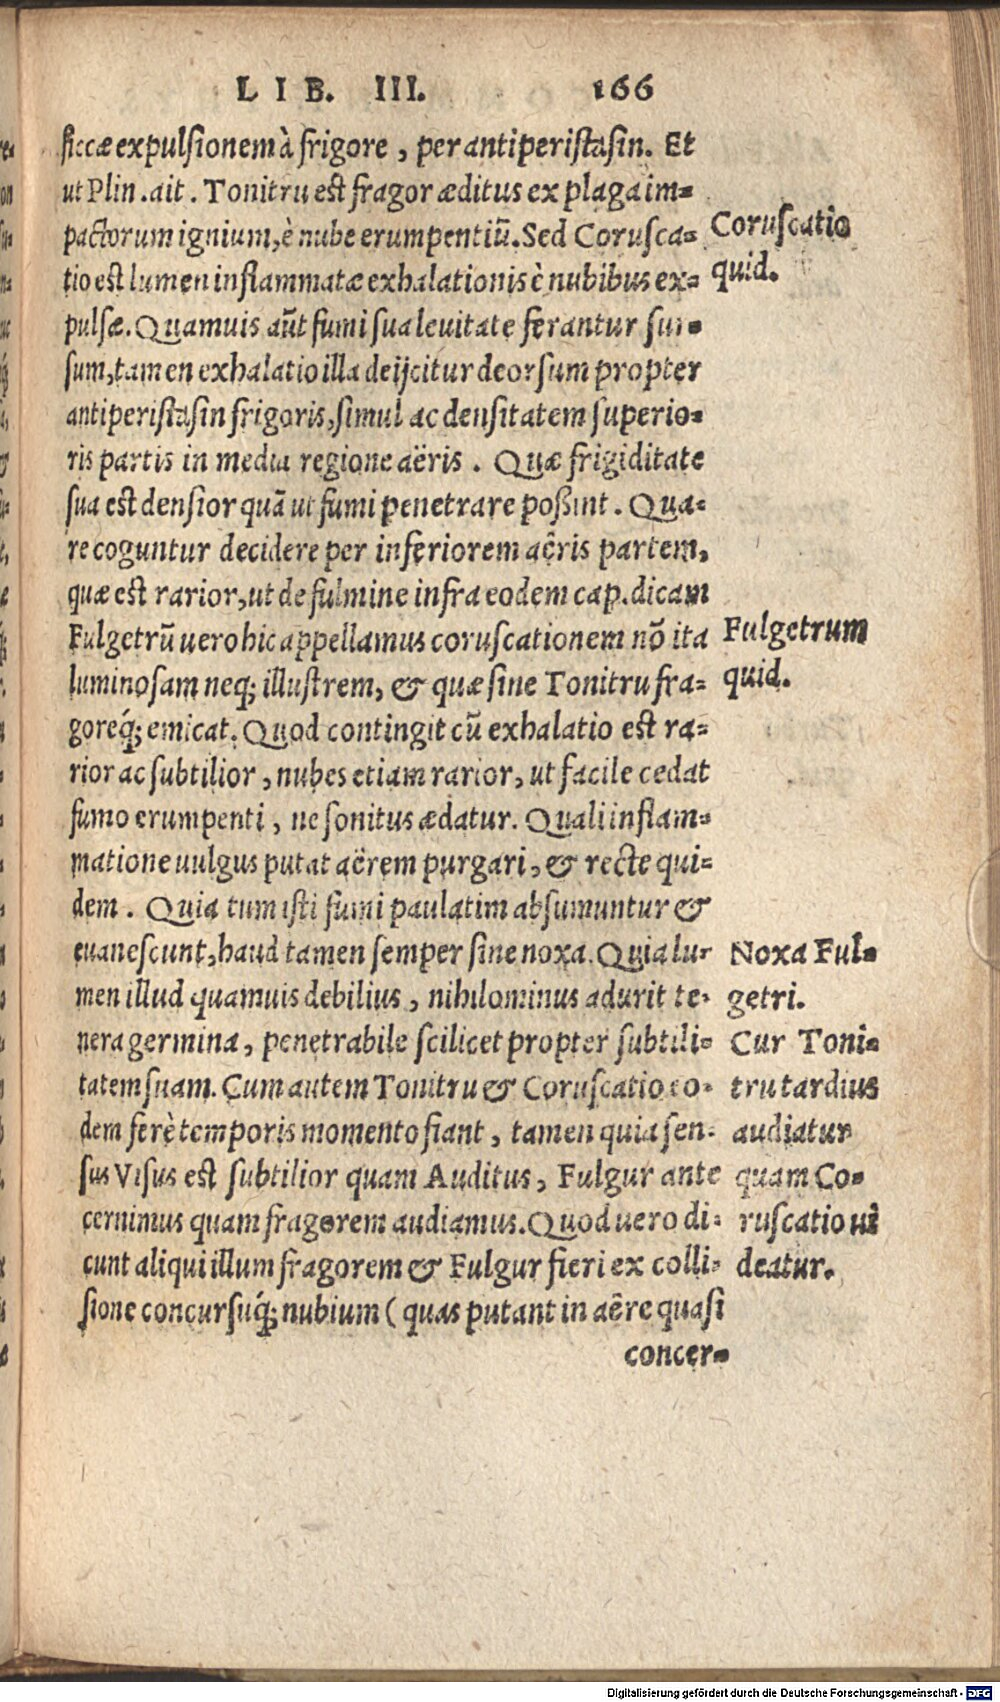 LIB. III. 166
siccæ expulsionem à frigore, per antiperistasin. Et
ut Plin. ait. Tonitru est fragor æditus ex plaga im-
pactorum ignium, è nube erumpentiū. Sed Corusca-
tio est lumen inflammatæ exhalationis è nubibus ex-
pulsæ. Quamuis aūt fumi sua leuitate ferantur sur-
sum, tamen exhalatio illa deijcitur deorsum propter
antiperistasin frigoris, simul ac densitatem superio-
ris partis in media regione aëris. Quæ frigiditate
sua est densior quā ut fumi penetrare poßint. Qua-
re coguntur decidere per inferiorem aëris partem,
quæ est rarior, ut de fulmine infra eodem cap. dicam
Fulgetrū uero hic appellamus coruscationem nō ita
luminosam neq; illustrem, & quæ sine Tonitru fra-
goreq́; emicat. Quod contingit cū exhalatio est ra-
rior ac subtilior, nubes etiam rarior, ut facile cedat
fumo erumpenti, ne sonitus ædatur. Quali inflam-
matione uulgus putat aërem purgari, & recte qui-
dem. Quia tum isti fumi paulatim absumuntur &
euanescunt, haud tamen semper sine noxa. Quia lu-
men illud quamuis debilius, nihilominus adurit te-
nera germina, penetrabile scilicet propter subtili-
tatem suam. Cum autem Tonitru & Coruscatio eo-
dem ferè temporis momento fiant, tamen quia sen-
sus Visus est subtilior quam Auditus, Fulgur ante
cernimus quam fragorem audiamus. Quod uero di-
cunt aliqui illum fragorem & Fulgur fieri ex colli-
sione concursuq́; nubium (quas putant in aëre quasi
concer-
Coruscatio
quid.
Fulgetrum
quid.
Noxa Ful-
getri.
Cur Toni-
tru tardius
audiatur
quam Co-
ruscatio ui
deatur.
Digitalisierung gefördert durch die Deutsche Forschungsgemeinschaft - DFG